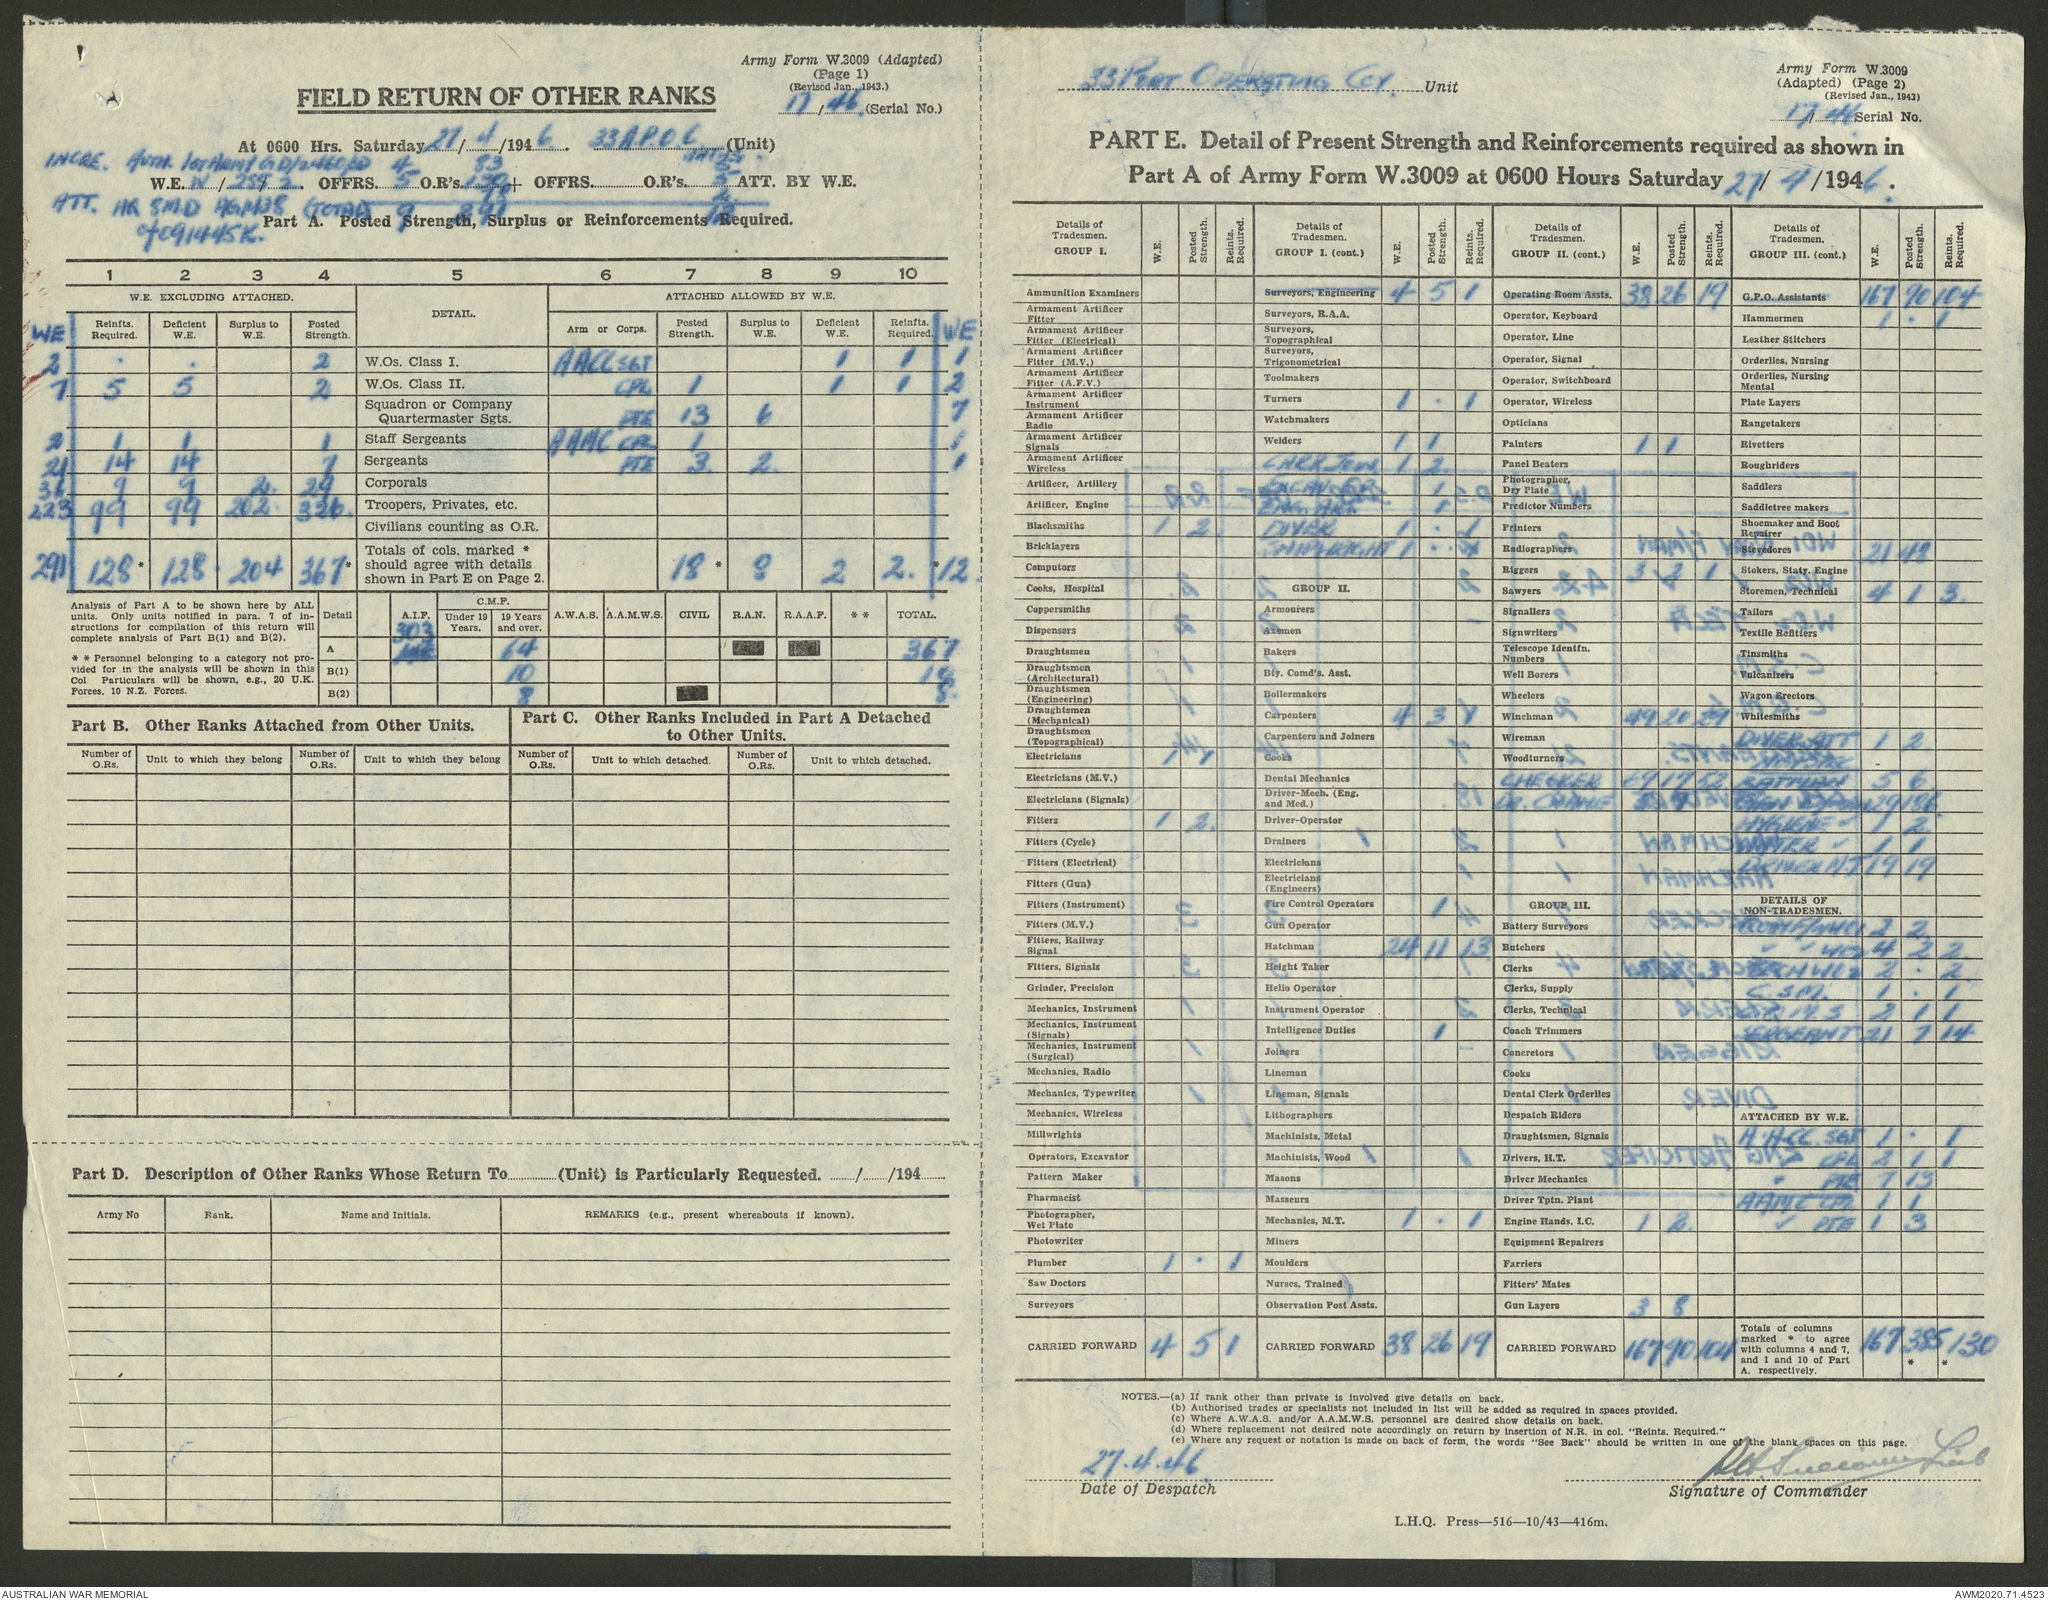 Army Form W.3009 (Adapted)
(Page 1)
(Revised Jan., 1943.)
17/46 (Serial No.)
FIELD RETURN OF OTHER RANKS
At 0600 Hrs. Saturday 27/4/1946. 33 A.P.O.C (Unit)
INCRE. AUTH.
W.E. IV/259/2 OFFRS. 5 O.R's. + OFFRS. O.R's. 5 ATT. BY W.E.
ATT. HQ SMD (TOTAL) 9
Part A. Posted Strength, Surplus or Reinforcements Required.
1 2 3 4 5 6 7 8 9 10
W.E. EXCLUDING ATTACHED. DETAIL. ATTACHED ALLOWED BY W.E.
WE Reinfts. Required. Deficient W.E. Surplus to W.E. Posted Strength. Arm or Corps. Posted Strength. Surplus to W.E. Deficient W.E. Reinfts. Required. WE
2 . . 2 W.Os. Class I. SGT 1 1 1
7 5 5 2 W.Os. Class II. CPL 1 1 1 2
Squadron or Company Quartermaster Sgts. PTE 13 6 7
2 1 1 1 Staff Sergeants AAMC CPL 1 1
21 14 14 7 Sergeants PTE 3 2 1
36 9 9 2 29 Corporals
223 99 99 202 326 Troopers, Privates, etc.
Civilians counting as O.R.
291 128 * 128 204 367 * Totals of cols. marked * should agree with details shown in Part E on Page 2. 18 * 8 2 2 * 12
Analysis of Part A to be shown here by ALL
units. Only units notified in para. 7 of in-
structions for compilation of this return will
complete analysis of Part B(1) and B(2).
* * Personnel belonging to a category not pro-
vided for in the analysis will be shown in this
Col. Particulars will be shown, e.g., 20 U.K.
Forces. 10 N.Z. Forces.
Detail A.I.F. C.M.F. Under 19 Years. 19 Years and over. A.W.A.S. A.A.M.W.S. CIVIL R.A.N. R.A.A.F. * * TOTAL.
A 303 64 367
B(1) 10 18
B(2) 8 8
Part B. Other Ranks Attached from Other Units.
Number of O.Rs. Unit to which they belong Number of O.Rs. Unit to which they belong
Part C. Other Ranks Included in Part A Detached
to Other Units.
Number of O.Rs. Unit to which detached. Number of O.Rs. Unit to which detached.
Part D. Description of Other Ranks Whose Return To (Unit) is Particularly Requested. / /194
Army No Rank. Name and Initials. REMARKS (e.g., present whereabouts if known).
33 PORT OPERATING COY. Unit
Army Form W.3009
(Adapted) (Page 2)
(Revised Jan., 1943)
17/46 Serial No.
PART E. Detail of Present Strength and Reinforcements required as shown in
Part A of Army Form W.3009 at 0600 Hours Saturday 27/4/1946.
Details of Tradesmen. GROUP I. W.E. Posted Strength. Reints. Required.
Ammunition Examiners
Armament Artificer Fitter
Armament Artificer Fitter (Electrical)
Armament Artificer Fitter (M.V.)
Armament Artificer Fitter (A.F.V.)
Armament Artificer Instrument
Armament Artificer Radio
Armament Artificer Signals
Armament Artificer Wireless
Artificer, Artillery
Artificer, Engine
Blacksmiths 1 2
Bricklayers
Computors
Cooks, Hospital
Coppersmiths
Dispensers
Draughtsmen
Draughtsmen (Architectural)
Draughtsmen (Engineering)
Draughtsmen (Mechanical)
Draughtsmen (Topographical)
Electricians 1
Electricians (M.V.)
Electricians (Signals)
Fitters 1 2
Fitters (Cycle)
Fitters (Electrical)
Fitters (Gun)
Fitters (Instrument)
Fitters (M.V.)
Fitters, Railway Signal
Fitters, Signals
Grinder, Precision
Mechanics, Instrument
Mechanics, Instrument (Signals)
Mechanics, Instrument (Surgical)
Mechanics, Radio
Mechanics, Typewriter
Mechanics, Wireless
Millwrights
Operators, Excavator
Pattern Maker
Pharmacist
Photographer, Wet Plate
Photowriter
Plumber 1 . 1
Saw Doctors
Surveyors
CARRIED FORWARD 4 5 1
Details of Tradesmen. GROUP I. (cont.) W.E. Posted Strength. Reints. Required.
Surveyors, Engineering 4 5 1
Surveyors, R.A.A.
Surveyors, Topographical
Surveyors, Trigonometrical
Toolmakers
Turners 1 . 1
Watchmakers
Welders 1 1
1 2
EXCAVATOR 1
DIVER 1 . 1
SHIPWRIGHT 1
GROUP II.
Armourers
Axemen
Bakers
Bty. Comd's. Asst.
Boilermakers
Carpenters 4 3 1
Carpenters and Joiners
Cooks
Dental Mechanics
Driver-Mech. (Eng. and Med.)
Driver-Operator
Drainers
Electricians
Electricians (Engineers)
Fire Control Operators 1
Gun Operator
Hatchman 24 11 13
Height Taker
Helio Operator
Instrument Operator
Intelligence Duties 1
Joiners
Lineman
Lineman, Signals
Lithographers
Machinists, Metal
Machinists, Wood
Masons
Masseurs
Mechanics, M.T. 1 . 1
Miners
Moulders
Nurses, Trained
Observation Post Assts.
CARRIED FORWARD 38 26 19
Details of Tradesmen. GROUP II. (cont.) W.E. Posted Strength. Reints. Required.
Operating Room Assts. 38 26 19
Operator, Keyboard
Operator, Line
Operator, Signal
Operator, Switchboard
Operator, Wireless
Opticians
Painters 1 1
Panel Beaters
Photographer, Dry Plate
Predictor Numbers
Printers
Radiographers
Riggers 3 2 1
Sawyers
Signallers
Signwriters
Telescope Identfn. Numbers
Well Borers
Wheelers
Winchman 49 20 29
Wireman
Woodturners
CHECKER 69 17 52
DR. CRANE
GROUP III.
Battery Surveyors
Butchers
Clerks
Clerks, Supply
Clerks, Technical
Coach Trimmers
Concretors
Cooks
Dental Clerk Orderlies
Despatch Riders
Draughtsmen, Signals
Drivers, H.T.
Driver Mechanics
Driver Tptn. Plant
Engine Hands, I.C. 1 2
Equipment Repairers
Farriers
Fitters' Mates
Gun Layers 3 8
CARRIED FORWARD 167 90 104
Details of Tradesmen. GROUP III. (cont.) W.E. Posted Strength. Reints. Required.
G.P.O. Assistants 167 90 104
Hammermen 1 . 1
Leather Stitchers
Orderlies, Nursing
Orderlies, Nursing Mental
Plate Layers
Rangetakers
Rivetters
Roughriders
Saddlers
Saddletree makers
Shoemaker and Boot Repairer
Stevedores 21 48
Stokers, Staty. Engine
Storemen, Technical 4 1 3
Tailors
Textile Refitters
Tinsmiths
Vulcanizers
Wagon Erectors
Whitesmiths
DIVER ATT 1 2
BATMAN 5 6
29 186
HYGIENE 1 2
WATER 1 1
DRIVER M.T 19 19
DETAILS OF NON-TRADESMEN.
2 2
4 2 2
2 . 2
C.S.M. 1 . 1
2 1 1
SERGEANT 21 7 14
ATTACHED BY W.E.
SGT 1 . 1
CPL 2 1 1
PTE 7 13
AAMC CPL 1 1
PTE 1 3
Totals of columns marked * to agree with columns 4 and 7, and 1 and 10 of Part A, respectively. 167 385 * 130 *
NOTES.—(a) If rank other than private is involved give details on back.
(b) Authorised trades or specialists not included in list will be added as required in spaces provided.
(c) Where A.W.A.S. and/or A.A.M.W.S. personnel are desired show details on back.
(d) Where replacement not desired note accordingly on return by insertion of N.R. in col. "Reints. Required."
(e) Where any request or notation is made on back of form, the words "See Back" should be written in one of the blank spaces on this page.
27.4.46.
Date of Despatch
Signature of Commander
L.H.Q. Press—516—10/43—416m.
AUSTRALIAN WAR MEMORIAL
AWM2020.71.4523